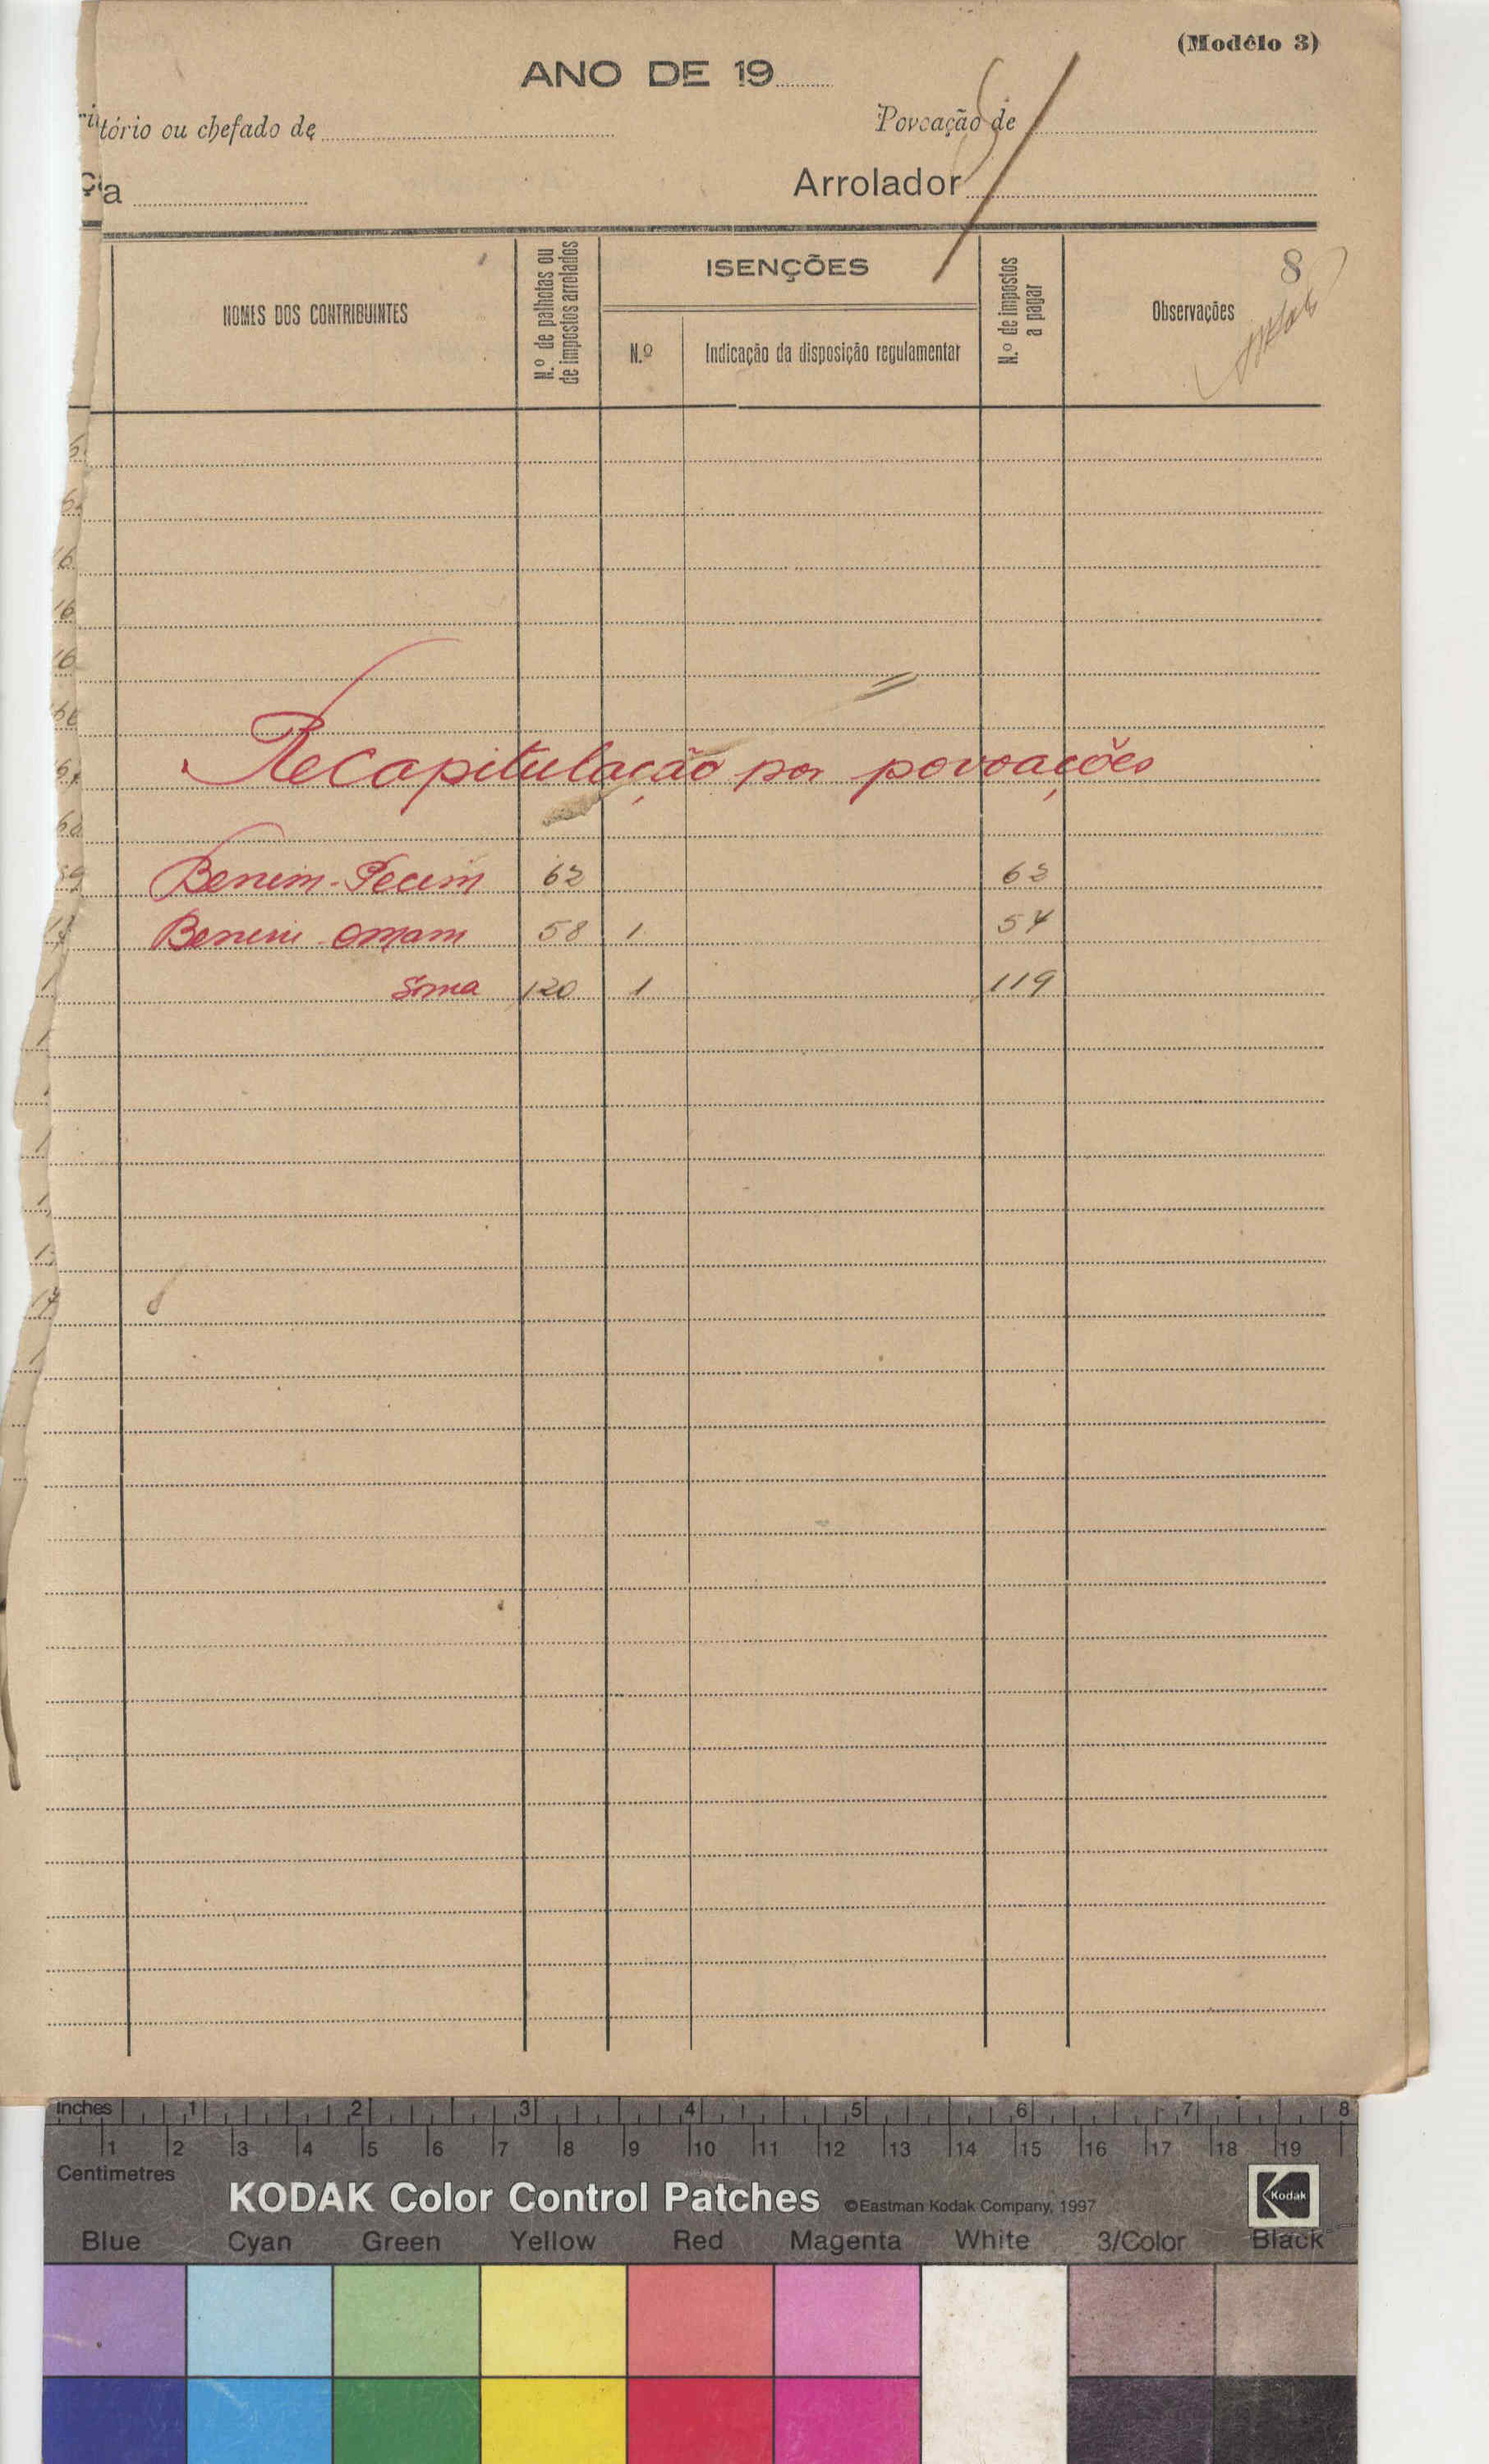 (Modêlo 3)
ANO DE 19
tório ou chefado de
Povoação de
a
Arrolador
NOMES DOS CONTRIBUINTES
N.º de palhotas ou
de impostos arrolados
ISENÇÕES
N.º
Indicação da disposição regulamentar
N.º de impostos
a pagar
Observações
8
Recapitulação por povoações
62 62
Benim 58 1 54
Soma 120 1 119
Inches 1 2 3 4 5 6 7 8
1 2 3 4 5 6 7 8 9 10 11 12 13 14 15 16 17 18 19
Centimetres
KODAK Color Control Patches ©Eastman Kodak Company, 1997 Kodak
Blue Cyan Green Yellow Red Magenta White 3/Color Black